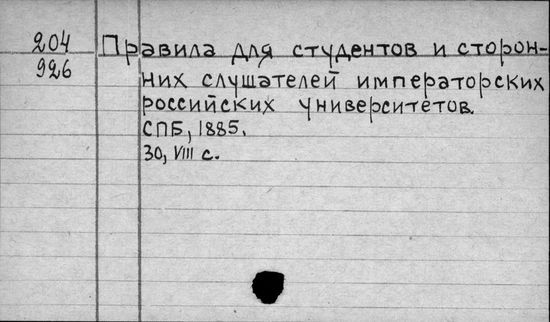 204 Правила для студентов и сторон-
926 них слушателей императорских
российских университетов.
СПБ, 1885.
30, VIII с.